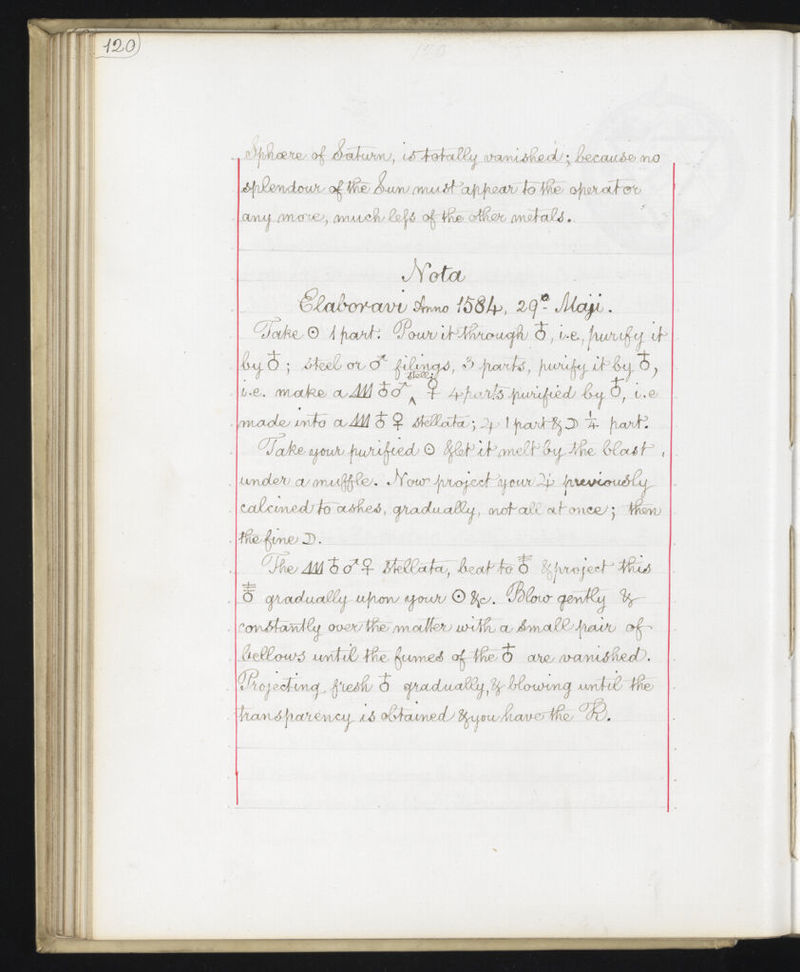 120
Sphære of Saturn, is totally vanished; because no
splendour of the Sun must appear to the operator
any more, much less of the other metals.
Nota
Elaboravi Anno 1584, 29º Maji.
Take ☉ 1 part. Pour it through ♁, i.e, purify it
by ♁; steel or ♂ filings, 3 parts, purify it by ♁,
i.e. make a ♁♂ stell: ♀ 4 parts purified by ♁, i.e
made into a ♁♀ stellata; ♃ 1 part & ☽ ¼ part.
Take your purified ☉ & let it melt by the blast,
under a muffle. Now project your ♃ previously
calcined to ashes, gradually, not all at once; then
the fine ☽.
The ♁♂♀ Stellata, beat to ♁ & project this
♁ gradually upon your ☉ &c. Blow gently &
constantly over the matter with a small pair of
bellows until the fumes of the ♁ are vanished.
Projecting fresh ♁ gradually, & blowing until the
transparency is obtained & you have the R.